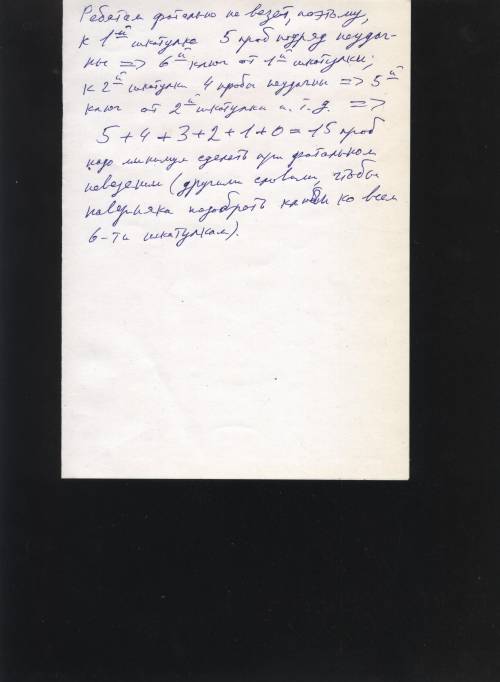 Ребятам фатально не везёт, поэтому,
к 1й шкатулке 5 проб подряд неудач-
ны => 6й ключ от 1й шкатулки;
к 2й шкатулке 4 пробы неудачны => 5й
ключ от 2й шкатулки и т.д. =>
5+4+3+2+1+0=15 проб
надо минимум сделать при фатальном
невезении (другими словами, чтобы
наверняка подобрать ключи ко всем
6-ти шкатулкам).